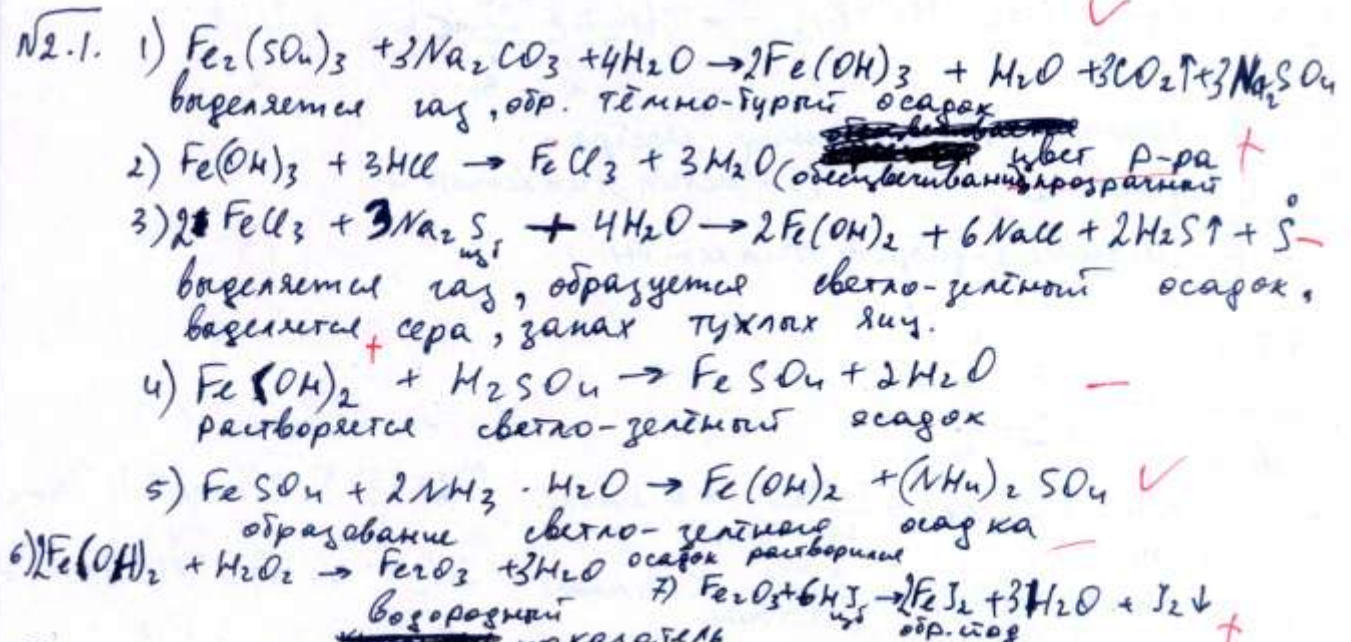 №2.1. 1) Fe₂(SO₄)₃ + 3Na₂CO₃ + 4H₂O → 2Fe(OH)₃ + H₂O + 3CO₂↑ + 3Na₂SO₄
выделяется газ, обр. тёмно-бурый осадок
2) Fe(OH)₃ + 3HCl → FeCl₃ + 3H₂O (обесцвечивание, прозрачный цвет р-ра
3) 2FeCl₃ + 3Na₂S изб + 4H₂O → 2Fe(OH)₂ + 6NaCl + 2H₂S↑ + S⁰
выделяется газ, образуется светло-зелёный осадок,
выделяется сера, запах тухлых яиц.
4) Fe(OH)₂ + H₂SO₄ → FeSO₄ + 2H₂O
растворяется светло-зелёный осадок
5) FeSO₄ + 2NH₃ · H₂O → Fe(OH)₂ + (NH₄)₂SO₄
образование светло-зелёного осадка
6) 2Fe(OH)₂ + H₂O₂ → Fe₂O₃ + 3H₂O осадок растворился
7) Fe₂O₃ + 6HJ изб → 2FeJ₂ + 3H₂O + J₂↓
обр. йод
водородный
показатель